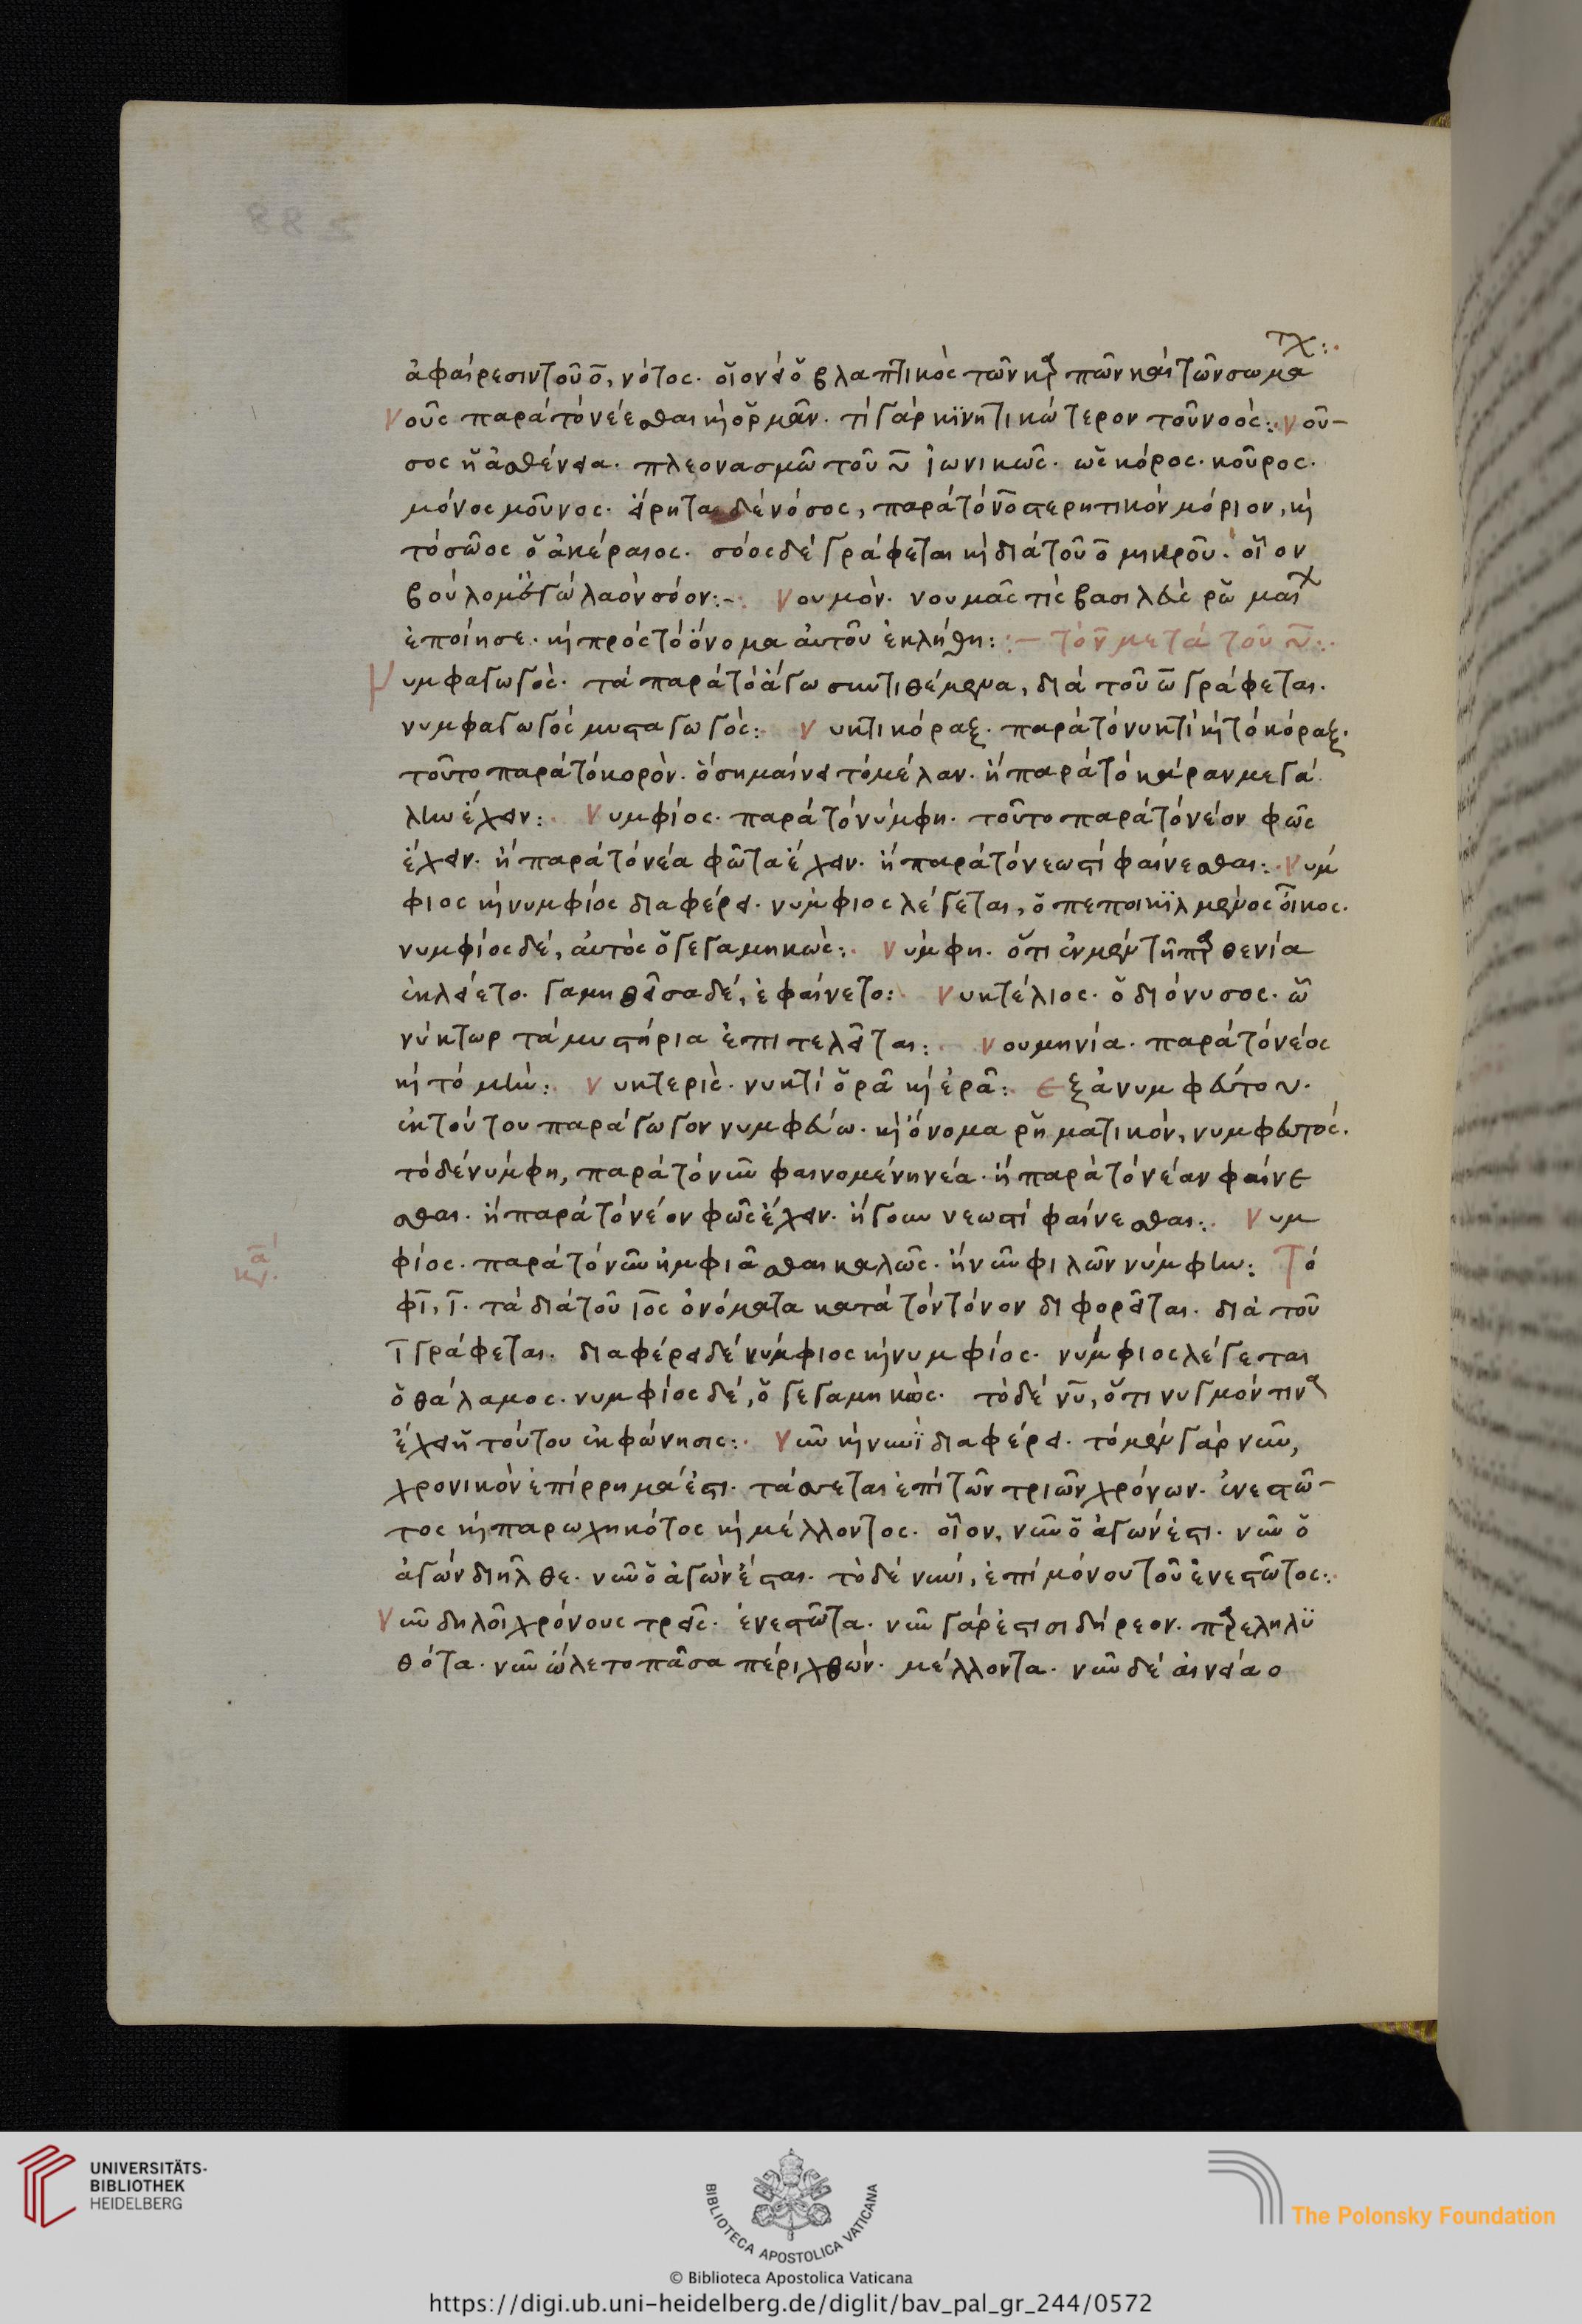 τχ:·
ἀφαίρεσιν τοῦ ο̄, νότος· οἱονεὶ ὁ βλαπτικὸς τῶν καρπῶν καὶ τῶν σωμα
Νοῦς παρὰ τὸ νέεσθαι κὶ ὁρμᾶν· τί γὰρ κινητικώτερον τοῦ νοός:· Νοῦ-
σος ἡ ἀσθένεια· πλεονασμῶ τοῦ ῡ ἰωνικῶς· ὡς κόρος· κοῦρος·
μόνος μοῦνος· εἴρηται δὲ νόσος, παρὰ τὸ νο̄ στερητικὸν μόριον, κὶ
τὸ σῶος ὁ ἀκέραιος· σόος δὲ γράφεται κὶ διὰ τοῦ ο̄ μικροῦ· οἷον
βούλομ' ἐγὼ λαὸν σόον:- Νουμὸν· νουμᾶς τὶς βασιλεὺς ρωμαίχ
ἐποίησε· κὶ πρὸς τὸ ὄνομα αὐτοῦ ἐκλήθη:- τὸ ν̄ μετὰ τοῦ ῡ:·
Νυμφαγωγὸς· τὰ παρὰ τὸ ἄγω συντιθέμενα, διὰ τοῦ ω̄ γράφεται·
νυμφαγωγός μυσταγωγός:· Νυκτικόραξ· παρὰ τὸ νυκτὶ κὶ τὸ κόραξ·
τοῦτο παρὰ τὸ κορὸν· ὃ σημαίνει τὸ μέλαν· ἢ παρὰ τὸ κάραν μεγά
λην ἔχειν:· Νυμφίος· παρὰ τὸ νύμφη· τοῦτο παρὰ τὸ νέον φῶς
ἔχειν· ἢ παρὰ τὸ νέα φῶτα ἔχειν· ἢ παρὰ τὸ νεωστί φαίνεσθαι:· Νύμ
φιος κὶ νυμφίος διαφέρει· νύμφιος λέγεται, ὁ πεποικιλμένος οἶκος·
νυμφίος δέ, αὐτὸς ὁ γεγαμηκώς:· Νύμφη· ὅτι ἐν μὲν τῆ παρθενία
ἐκλείετο· γαμηθεῖσα δέ, ἐφαίνετο:· Νυκτέλιος· ὁ διόνυσος· ὧ
νύκτωρ τὰ μυστήρια ἐπιτελεῖται:· Νουμηνία· παρὰ τὸ νέος
κὶ τὸ μὴν:· Νυκτερίς· νυκτὶ ὁρᾶ κὶ ἐρᾶ:· Ἐξανυμφεύτου·
ἐκ τούτου παράγωγον νυμφεύω· κὶ ὄνομα ῥηματικόν, νυμφευτός·
τὸ δὲ νύμφη, παρὰ τὸ νῦν φαινομένη νέα· ἢ παρὰ τὸ νέαν φαίνε
σθαι· ἢ παρὰ τὸ νέον φῶς ἔχειν· ἤγουν νεωστί φαίνεσθαι:· Νυμ
φίος· παρὰ τὸ νῦν ἠμφιᾶσθαι καλῶς· ἢ νῦν φιλῶν νύμφην:· Τὸ
φῑ, ῑ· τὰ διὰ τοῦ ῑος ὀνόματα κατὰ τὸν τόνον διφορεῖται· διὰ τοῦ
ῑ γράφεται· διαφέρει δὲ νύμφιος κὶ νυμφίος· νύμφιος λέγεται
ὁ θάλαμος· νυμφίος δέ, ὁ γεγαμηκὼς· τὸ δὲ νῦ, ὅτι νυγμόν τινα
ἔχει ἡ τούτου ἐκφώνησις:· Νῦν κὶ νυνῒ διαφέρει· τὸ μὲν γὰρ νῦν,
χρονικὸν ἐπίρρημά ἐστι· τάσσεται ἐπὶ τῶν τριῶν χρόνων· ἐνεστῶ-
τος κὶ παρωχηκότος κὶ μέλλοντος· οἷον, νῦν ὁ ἀγών ἐστι· νῦν ὁ
ἀγὼν διῆλθε· νῦν ὁ ἀγὼν ἔσται· τὸ δὲ νυνί, ἐπὶ μόνου τοῦ ἐνεστῶτος:·
Νῦν δηλοῖ χρόνους τρεῖς· ἐνεστῶτα· νῦν γάρ ἐστι σιδήρεον· παρεληλϋ
θότα· νῦν ὤλετο πᾶσα πέρι χθών· μέλλοντα· νῦν δέ αἰνεία ο
UNIVERSITÄTS-
BIBLIOTHEK
HEIDELBERG
BIBLIOTECA APOSTOLICA VATICANA
The Polonsky Foundation
© Biblioteca Apostolica Vaticana
https://digi.ub.uni-heidelberg.de/diglit/bav_pal_gr_244/0572